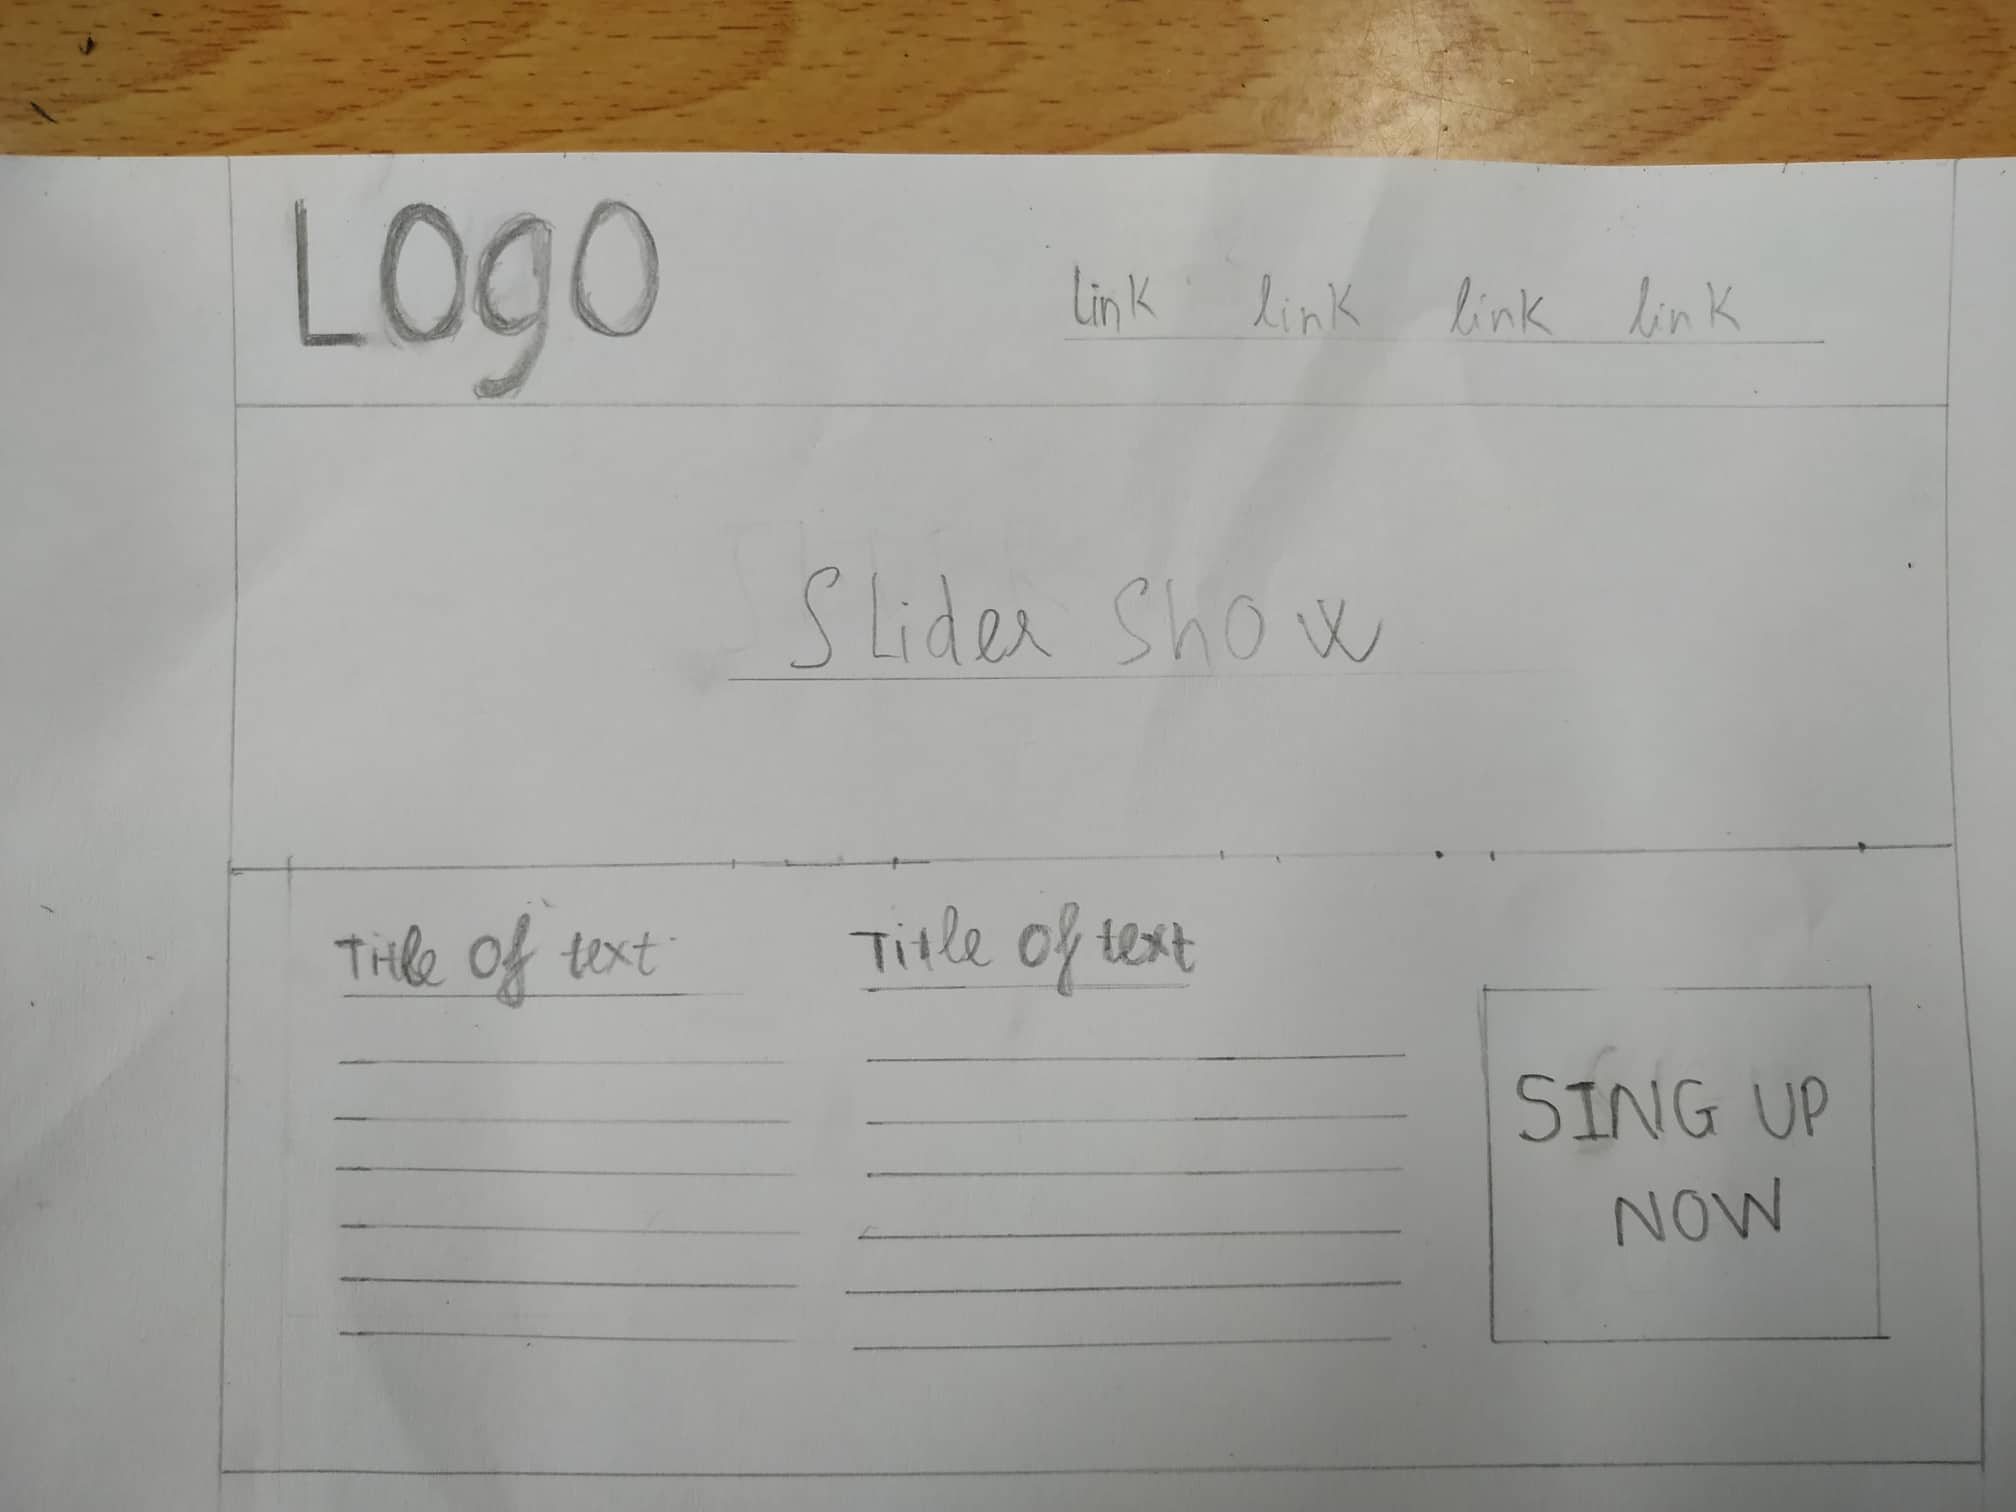 Logo
Link link link link
Slider Show
Title of text
Title of text
SING UP
NOW